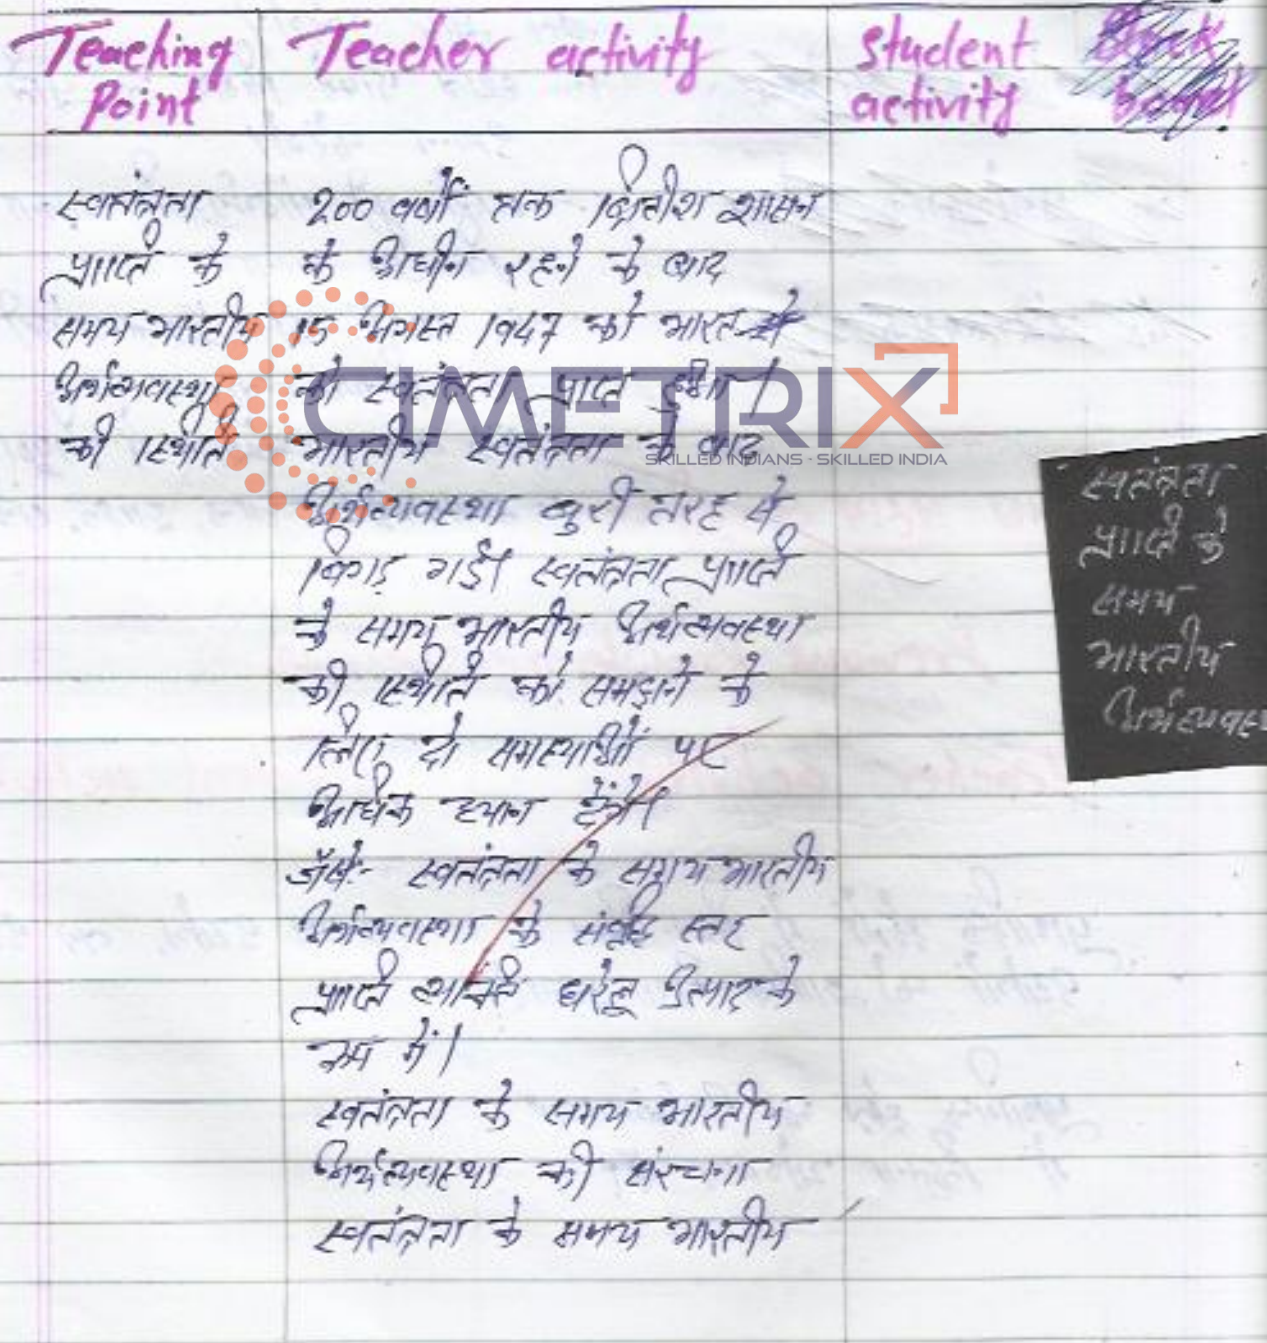 Teaching Point
Teacher activity
Student activity
Black board
स्वतंत्रता
प्राप्ति के
समय भारतीय
अर्थव्यवस्था
की स्थीति
200 वर्षों तक ब्रितीश शासन
के अधीन रहने के बाद
15 अगस्त 1947 को भारत
को स्वतंत्रता प्राप्त हुआ।
भारतीय स्वतंत्रता के बाद
अर्थव्यवस्था बुरी तरह से
बिगड़ गई। स्वतंत्रता प्राप्ति
के समय भारतीय अर्थव्यवस्था
की स्थीति को समझने के
लिए दो समस्याओं पर
अधिक ध्यान देंगे।
जैसे:- स्वतंत्रता के समय भारतीय
अर्थव्यवस्था के स्तर
प्राप्ति व्यक्ति घरेलू उत्पाद के
रूप में।
स्वतंत्रता के समय भारतीय
अर्थव्यवस्था की संरचना
स्वतंत्रता के समय भारतीय
स्वतंत्रता
प्राप्ति के
समय
भारतीय
CIMETRIX
SKILLED INDIANS - SKILLED INDIA